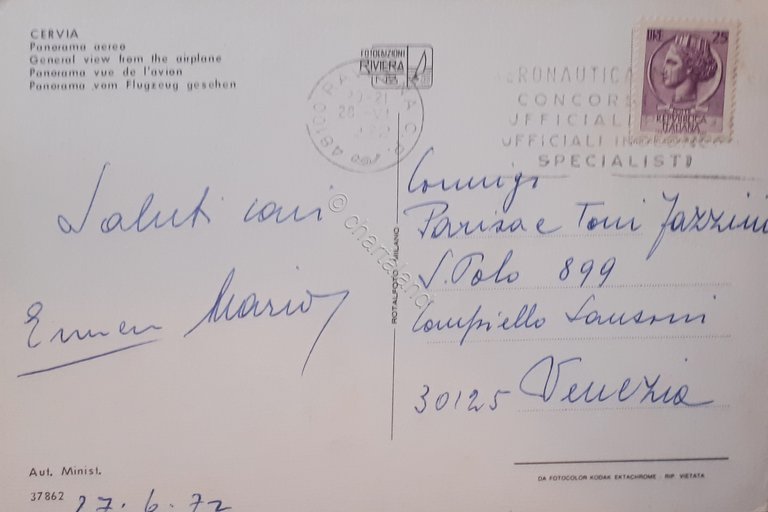 CERVIA
Panorama aereo
General view from the airplane
Panorama vue de l'avion
Panorama vom Flugzeug gesehen
FOTOEDIZIONI
RIVIERA
LIRE 25
POSTE
REPVBBLICA
ITALIANA
48100 RAVENNA C.P.
AERONAUTICA
CONCORSI
UFFICIALI
UFFICIALI
SPECIALISTI
Saluti cari
Mario
Coniugi
Parisa e Toni Jazzini
S. Polo 899
Campiello Sansoni
30125 Venezia
ROTALFOTO - MILANO
Aut. Minist.
37862
27.6.72
DA FOTOCOLOR KODAK EKTACHROME - RIP. VIETATA